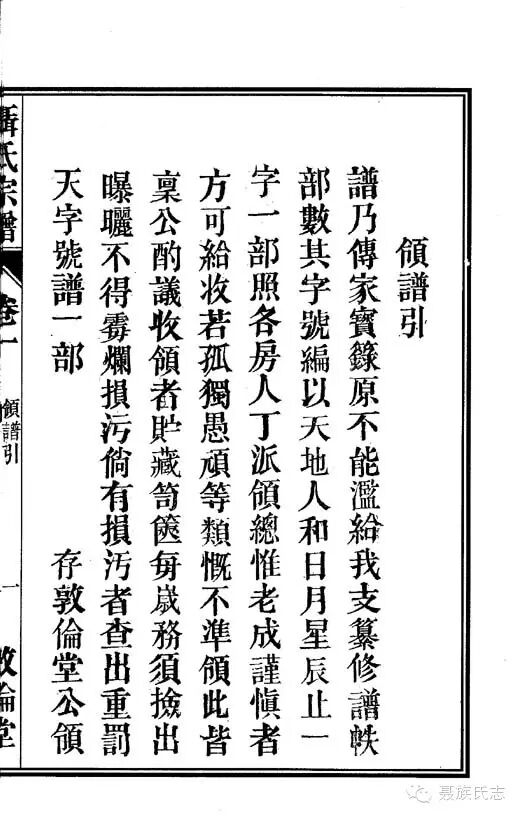 領譜引
譜乃傳家寶籙原不能濫給我支纂修譜帙
部數其字號編以天地人和日月星辰止一
字一部照各房人丁派領總惟老成謹愼者
方可給收若孤獨愚頑等類慨不準領此皆
稟公酌議收領者貯藏笥篋每歲務須撿出
曝曬不得霉爛損污倘有損汚者查出重罰
天字號譜一部 存敦倫堂公領
聶氏宗譜 卷一 領譜引 一 敦倫堂
聂族氏志